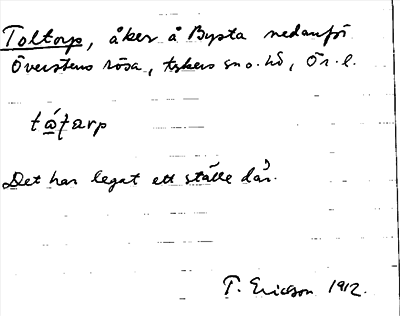 Toltorp, åker å Bysta nedanför
Överstens rösa, tskers sn o. hd, Ör. l.
Det har legat ett ställe där.
T. Ericson 1912.